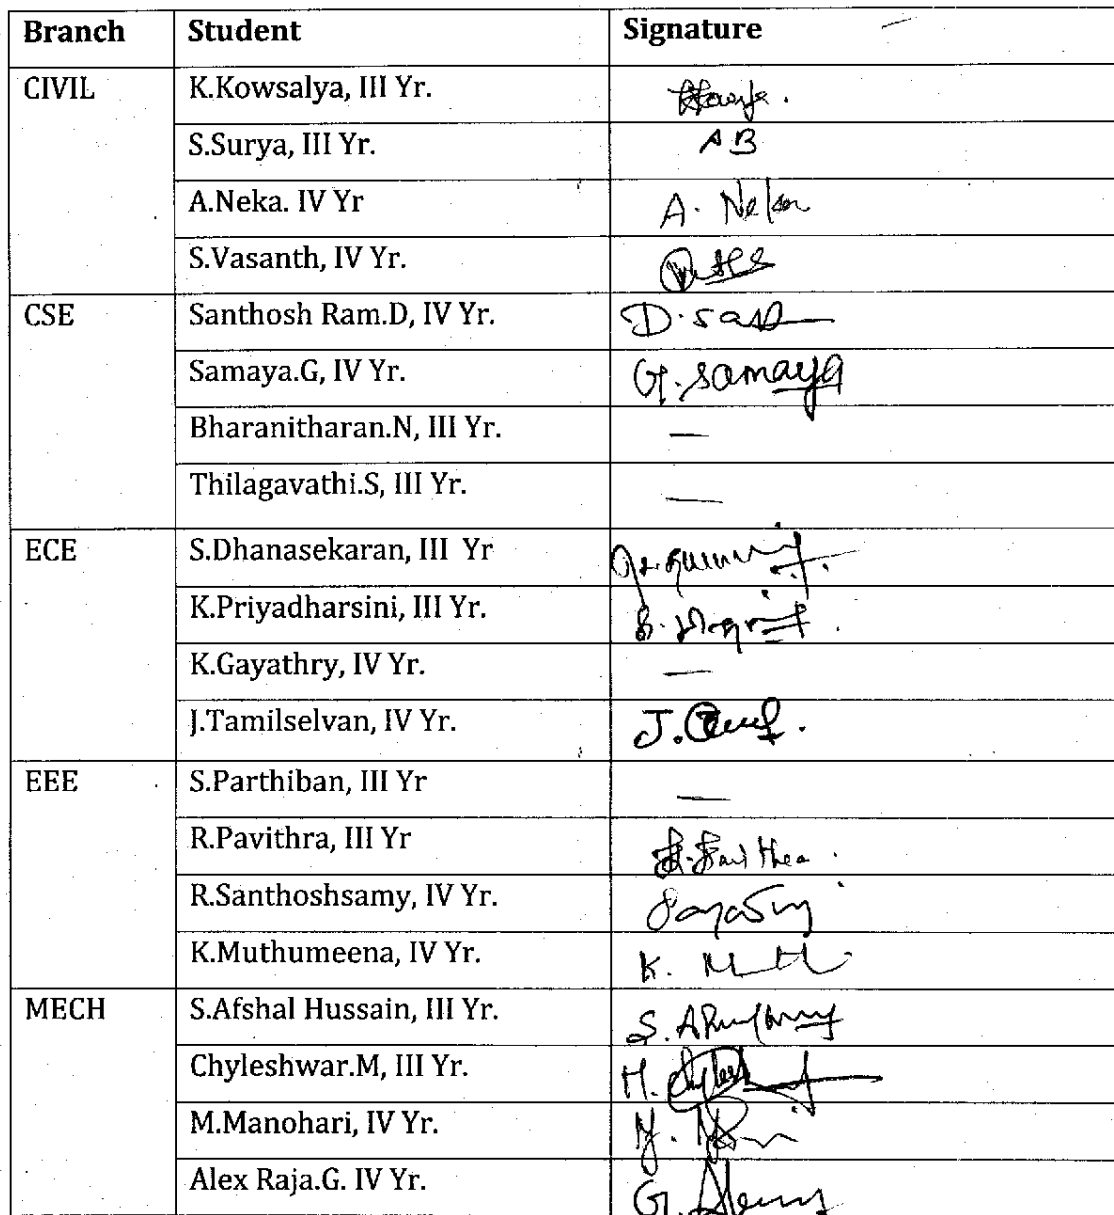 Branch Student Signature
CIVIL K.Kowsalya, III Yr.
S.Surya, III Yr. AB
A.Neka. IV Yr A. Neka
S.Vasanth, IV Yr.
CSE Santhosh Ram.D, IV Yr. D.
Samaya.G, IV Yr. G.Samaya
Bharanitharan.N, III Yr. —
Thilagavathi.S, III Yr. —
ECE S.Dhanasekaran, III Yr
K.Priyadharsini, III Yr.
K.Gayathry, IV Yr. —
J.Tamilselvan, IV Yr. J.
EEE S.Parthiban, III Yr —
R.Pavithra, III Yr
R.Santhoshsamy, IV Yr.
K.Muthumeena, IV Yr. K.
MECH S.Afshal Hussain, III Yr. S.
Chyleshwar.M, III Yr. M.
M.Manohari, IV Yr. M.
Alex Raja.G. IV Yr. G.